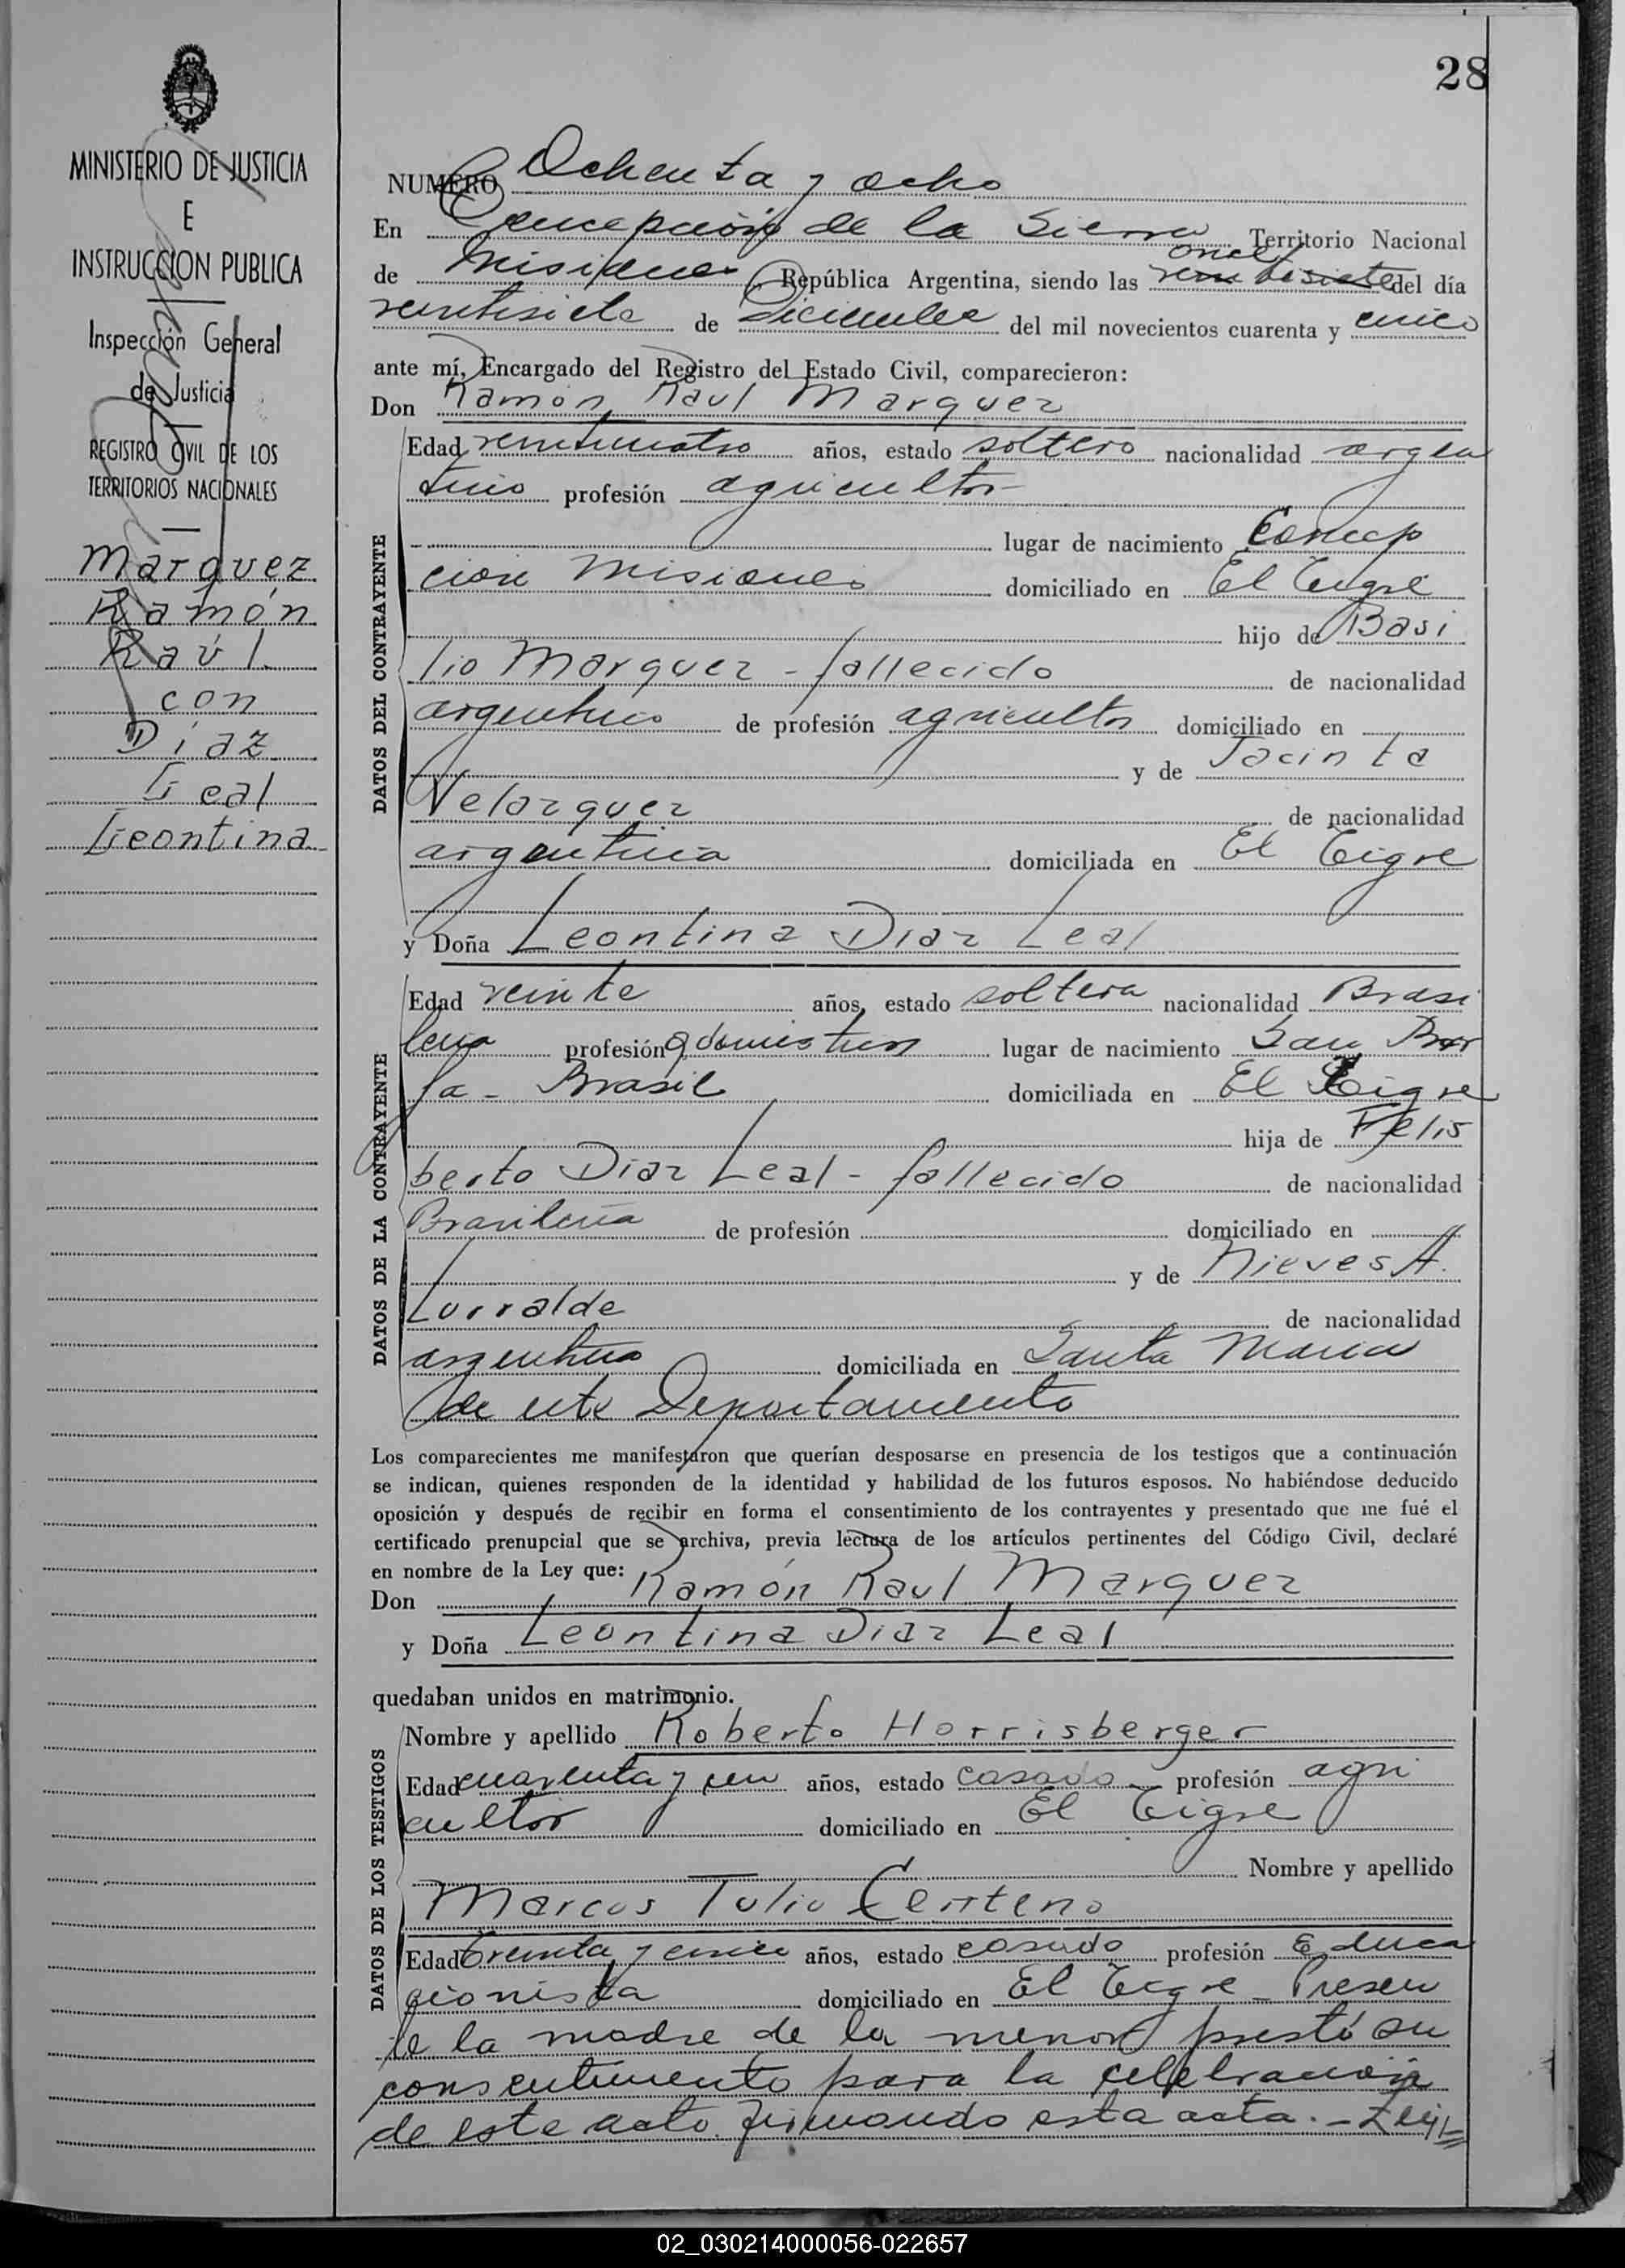 28
MINISTERIO DE JUSTICIA
E
INSTRUCCION PUBLICA
Inspección General
de Justicia
REGISTRO CIVIL DE LOS
TERRITORIOS NACIONALES
Marquez
Ramón
Raúl
con
Díaz
Leal
Leontina
NUMERO Ochenta y ocho
En Concepción de la Sierra Territorio Nacional
de Misiones, República Argentina, siendo las once del día
veintisiete de Diciembre del mil novecientos cuarenta y cinco
ante mí, Encargado del Registro del Estado Civil, comparecieron:
Don Ramón Raul Marquez
DATOS DEL CONTRAYENTE
Edad veinticuatro años, estado soltero nacionalidad argen
tino profesión agricultor
lugar de nacimiento Concep
cion Misiones domiciliado en El Tigre
hijo de Basi
lio Marquez - fallecido de nacionalidad
argentino de profesión agricultor domiciliado en
y de Jacinta
Velazquez de nacionalidad
argentina domiciliada en El Tigre
y Doña Leontina Diaz Leal
DATOS DE LA CONTRAYENTE
Edad veinte años, estado soltera nacionalidad Brasi
leña profesión lugar de nacimiento San Bor
ja - Brasil domiciliada en El Tigre
hija de Felis
berto Diaz Leal - fallecido de nacionalidad
Brasileña de profesión domiciliado en
y de Nieves A.
Lurralde de nacionalidad
argentina domiciliada en Santa Maria
de este Departamento
Los comparecientes me manifestaron que querían desposarse en presencia de los testigos que a continuación
se indican, quienes responden de la identidad y habilidad de los futuros esposos. No habiéndose deducido
oposición y después de recibir en forma el consentimiento de los contrayentes y presentado que me fué el
certificado prenupcial que se archiva, previa lectura de los artículos pertinentes del Código Civil, declaré
en nombre de la Ley que:
Don Ramón Raul Marquez
y Doña Leontina Diaz Leal
quedaban unidos en matrimonio.
DATOS DE LOS TESTIGOS
Nombre y apellido Roberto Horrisberger
Edad cuarenta y un años, estado casado profesión agri
cultor domiciliado en El Tigre
Nombre y apellido
Marcos Tulio Centeno
Edad treinta y cinco años, estado casado profesión Educa
cionista domiciliado en El Tigre - Presen
te la madre de la menor prestó su
consentimiento para la celebración
de este acto firmando esta acta. -
02_030214000056-022657